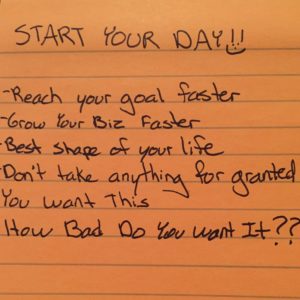 START YOUR DAY!!
-Reach your goal faster
-Grow Your Biz Faster
-Best shape of your life
-Don't take anything for granted
You want This
How Bad Do You want It??